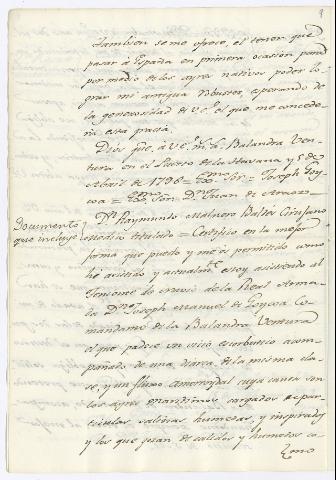 tambien se me ofrece, el tener que
pasar à España en primera ocasión para
por medio de los ayres nativos poder lo-
grar mi antigua robustez, esperando de
la generosidad de V.E. el que me concede-
ra esta gracia.
Dios gûe. à V.E. m.s a.s Balandra Ven-
tura en el Puerto de la Havana y 5 de
Abril de 1796 = Exmo Sor = Joseph Goy-
coa = Exmo Sor Dn Juan de Araoz
Documento
que incluye
Dn Raymundo Malnero Balta Cirujano
Medico titulado = Certifico en la mejor
forma que puedo y me és permitido como
he asistido y actualmte estoy asistiendo al
Teniente de Navio de la Real Arma-
da Dn Joseph Manuel de Goycoa Co-
mandante de la Balandra Ventura
el que padece un vicio escorbutico acom-
pañado de una diarea de la misma cla-
se, y un fluxo amorroydal cuya causa son
los ayres maritimos cargados de par-
ticulas salinas humedas, y inspirados
y los que gozan de calidos y humedos co-